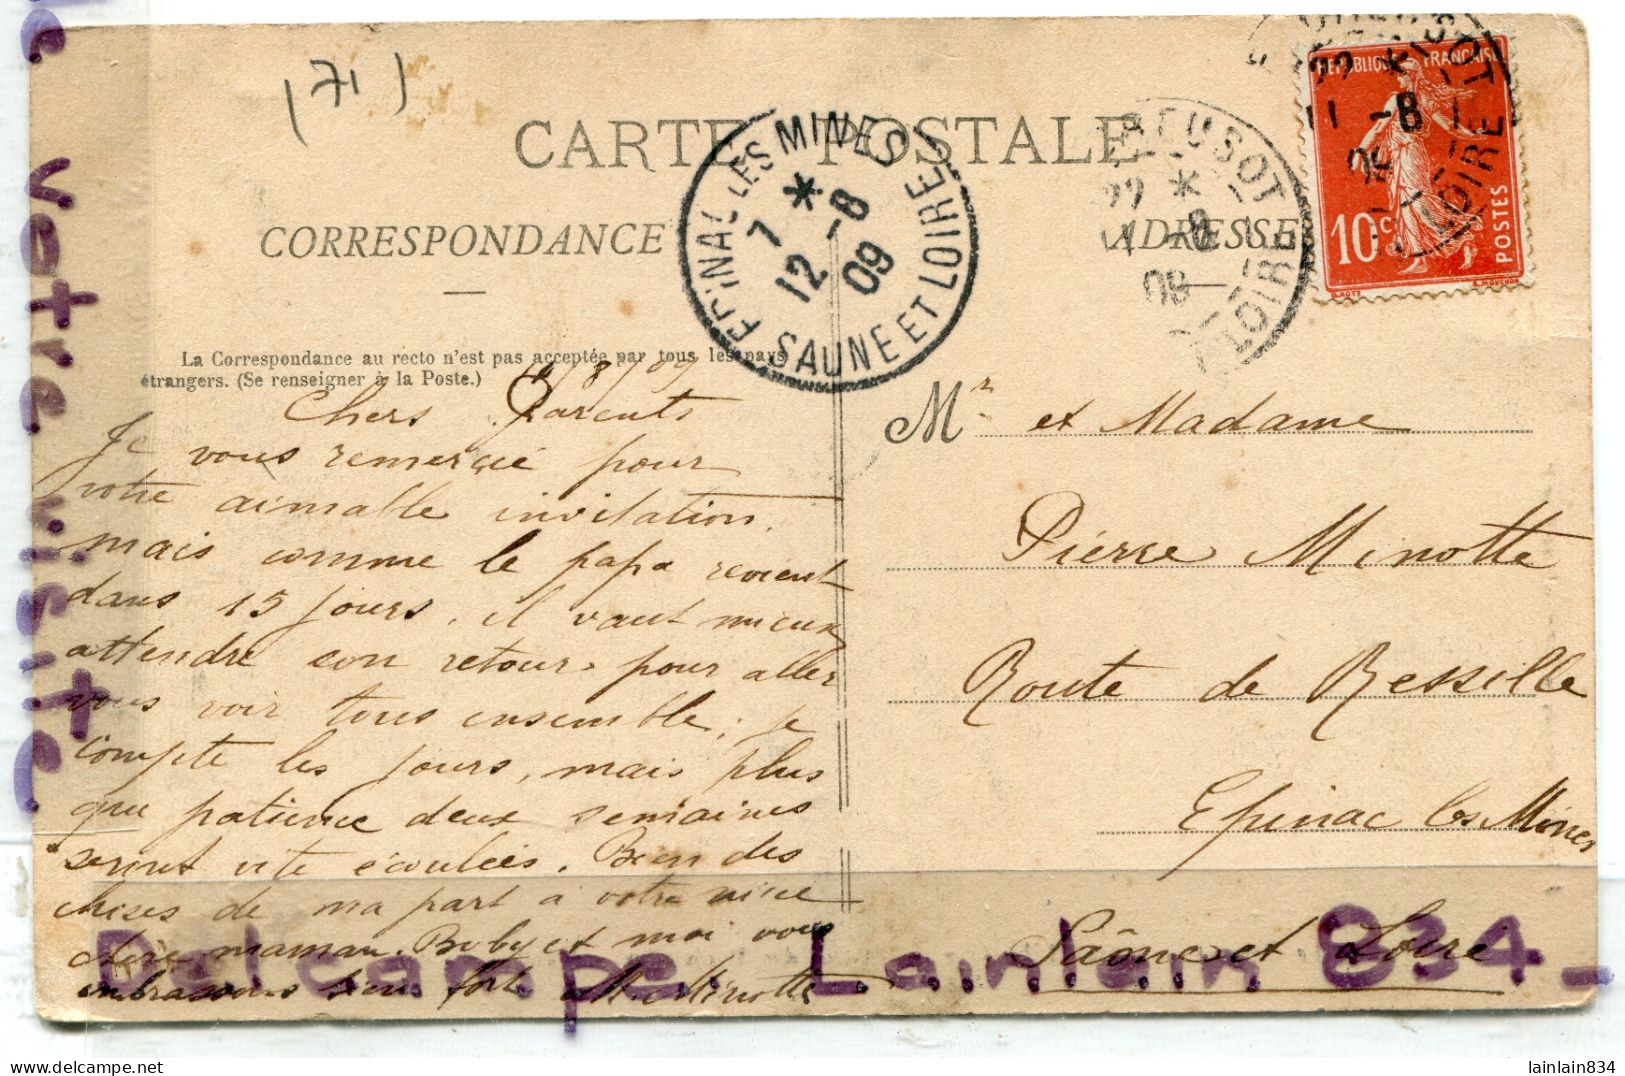 (71)
CARTE POSTALE
CORRESPONDANCE
ADRESSE
La Correspondance au recto n'est pas acceptée par tous les pays
étrangers. (Se renseigner à la Poste.)
EPINAC LES MINES
7 *
12 -8
09
SAONE ET LOIRE
CREUSOT
22 *
11 -8
09
LOIRE
REPUBLIQUE FRANÇAISE
10c
POSTES
O. ROTY
E. MOUCHON
22 *
11 -8
09
LOIRE
/8/09
Chers Parents
Je vous remercie pour
votre aimable invitation.
mais comme le papa revient
dans 15 jours, il vaut mieux
attendre son retour pour aller
vous voir tous ensemble, je
compte les jours, mais plus
que patience deux semaines
seront vite écoulées. Bien des
choses de ma part à votre
chère maman. Buby et moi vous
embrassons bien fort M. Minotte
Mr et Madame
Pierre Minotte
Route de Ressille
Epinac les Mines
Saône et Loire
Votre visite.
Delcampe. Lainlain 834-
lainlain834